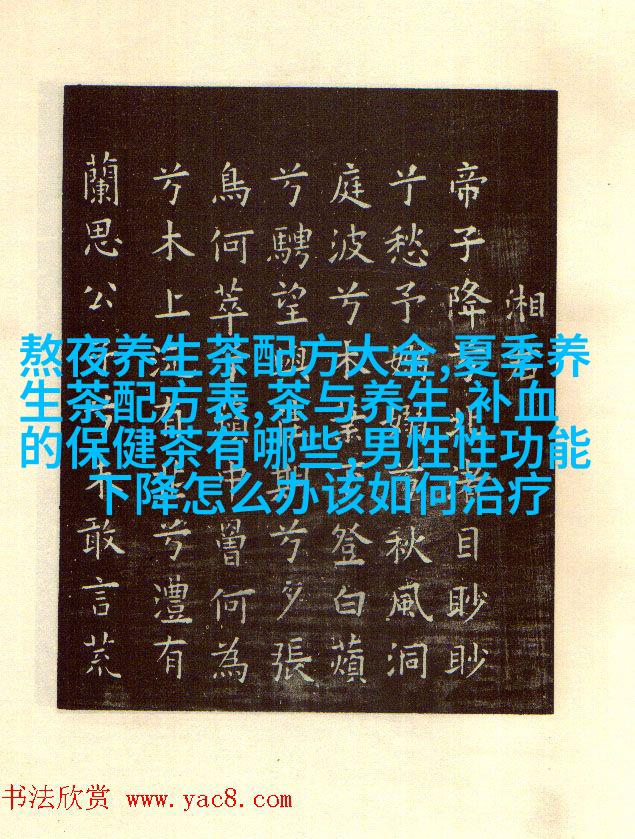 湘
帝子降兮北渚目眇眇
兮愁予嫋嫋兮秋風洞
庭波兮木葉下登白蘋
兮騁望與佳期兮夕張
鳥何萃兮蘋中罾何為
兮木上沅有芷兮澧有
蘭思公子兮未敢言荒
熬夜养生茶配方大全,夏季养
生茶配方表,茶与养生,补血
的保健茶有哪些,男性性功能
下降怎么办该如何治疗
书法欣赏 www.yac8.com